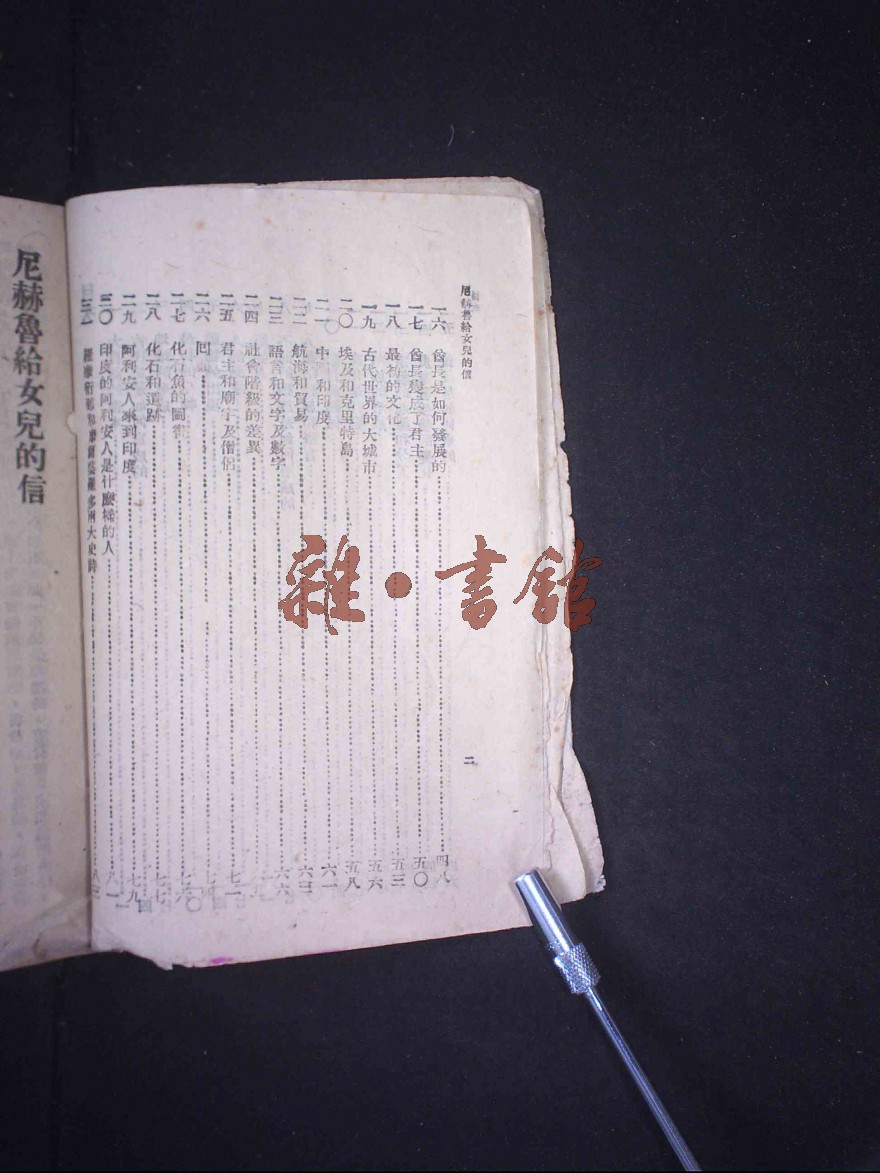 尼赫魯給女兒的信
一六 酋長是如何發展的 四八
一七 酋長變成了君主 五〇
一八 最初的文化 五三
一九 古代世界的大城市 五六
二〇 埃及和克里特島 五八
二一 中國和印度 六一
二二 航海和貿易 六三
二三 語言和文字及數字 六六
二四 社會階級的差異
二五 君主和廟宇及僧侶 七一
二六 回
二七 化石魚的圖
二八 化石和遺跡 七七
二九 阿利安人來到印度 七九
三〇 印度的阿利安人是什麼樣的人 八一
三一 兩大史詩 八三
二
尼赫魯給女兒的信
雜·書館